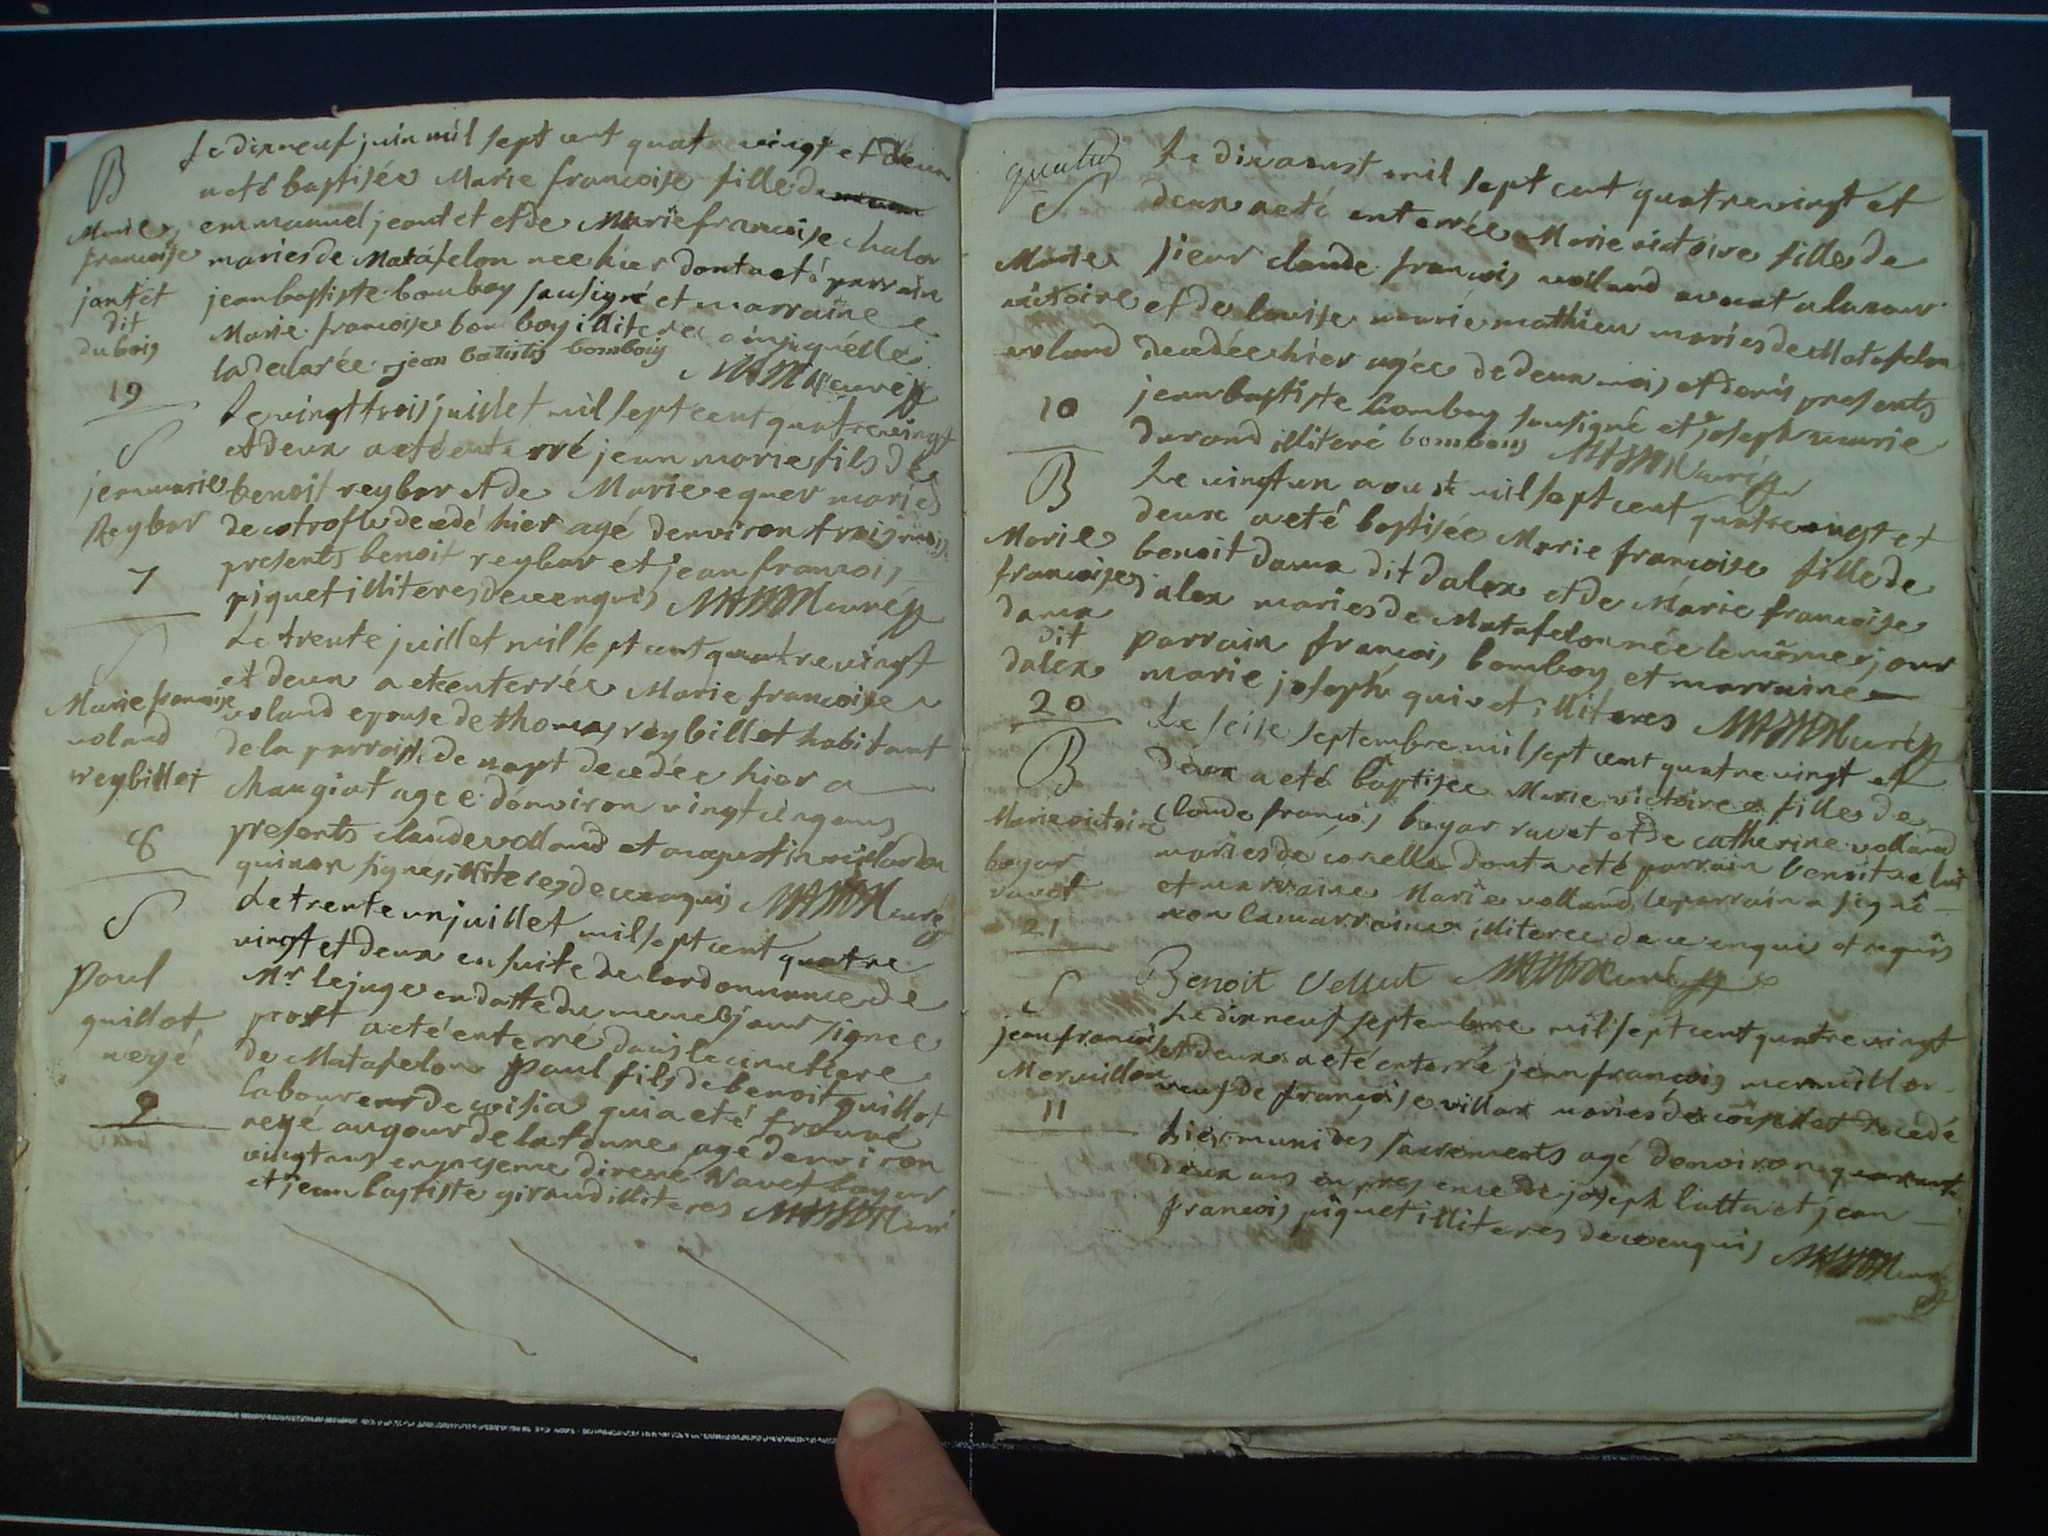 B
Marie
francoise
jantet
dit
dubois
19
Le dixneuf juin mil sept cent quatre vingt et deux
a eté baptisée Marie francoise fille de
emmanuel jeantet et de Marie francoise chalon
maries de Matafelon nee hier dont a eté parrain
jean baptiste bomboy sousigné et marraine
Marie francoise bomboy illiteree ainsi qu'elle
la declarée jean batistis bomboiy
MASSON curé
S
jean marie
Reybar
7
Le vingt trois juillet mil sept cent quatre vingt
et deux a eté enterré jean marie fils de
benoit reybar et de Marie eguer maries
de decedé hier agé denviron trois mois
presents benoit reybar et jean francois
piquet illiteres de ce enquis MASSON curé
S
Marie francoise
voland
reybillot
8
Le trente juillet mil sept cent quatre vingt
et deux a eté enterrée Marie francoise
voland epouse de thomas reybillot habitant
de la parroisse de napt decedée hier a
changiat agee d'environ vingt cinq ans
presents claude volland et augustin
qui non signés illiteres de ce enquis MASSON curé
S
Paul
guillot
neyé
9
Le trente un juillet mil sept cent quatre
vingt et deux en suite de lordonnance de
Mr le juge en datte du meme jour signee
prost a eté enterré dans le cimetiere
de Matafelon Paul fils de benoit guillot
laboureur de coisia qui a eté trouvé
neyé au gour de la tonne agé denviron
vingt ans en presence
et jean baptiste giraud illiteres MASSON curé
S
Marie
victoire
voland
10
Le dix aoust mil sept cent quatre vingt et
deux a eté enterrée Marie victoire fille de
sieur claude francois volland avocat a la cour
et de louise marie mathieu maries de Matafelon
decedée hier agée de deux mois et demi presents
jean baptiste bomboy sousigné et joseph marie
durand illiteré bomboiy MASSON curé
B
Marie
francoise
daux
dit
dalex
20
Le vingt un aoust mil sept cent quatre vingt et
deux a eté baptisée Marie francoise fille de
benoit daux dit dalex et de Marie francoise
dalex maries de Matafelon née le même jour
parrain francois bomboy et marraine
marie josephe quivet illiteres MASSON curé
B
Marie victoire
boyar
ravet
21
Le seise septembre mil sept cent quatre vingt et
deux a eté baptisee Marie victoire fille de
Claude francois boyar ravet et de catherine volland
maries de corcelle dont a eté parrain benoit velut
et marraine Marie volland le parrain a signé
non la marraine illiteree de ce enquise et requis
Benoit Vellut MASSON curé
S
jean francois
Mermillon
11
Le dix neuf septembre mil sept cent quatre vingt
et deux a eté enterré jean françois mermillon
veuf de françoise villar maries de coiselet decedé
hier muni des sacrements agé denviron quarante
deux ans en presence de joseph latta et jean
francois piquet illiteres de ce enquis MASSON curé